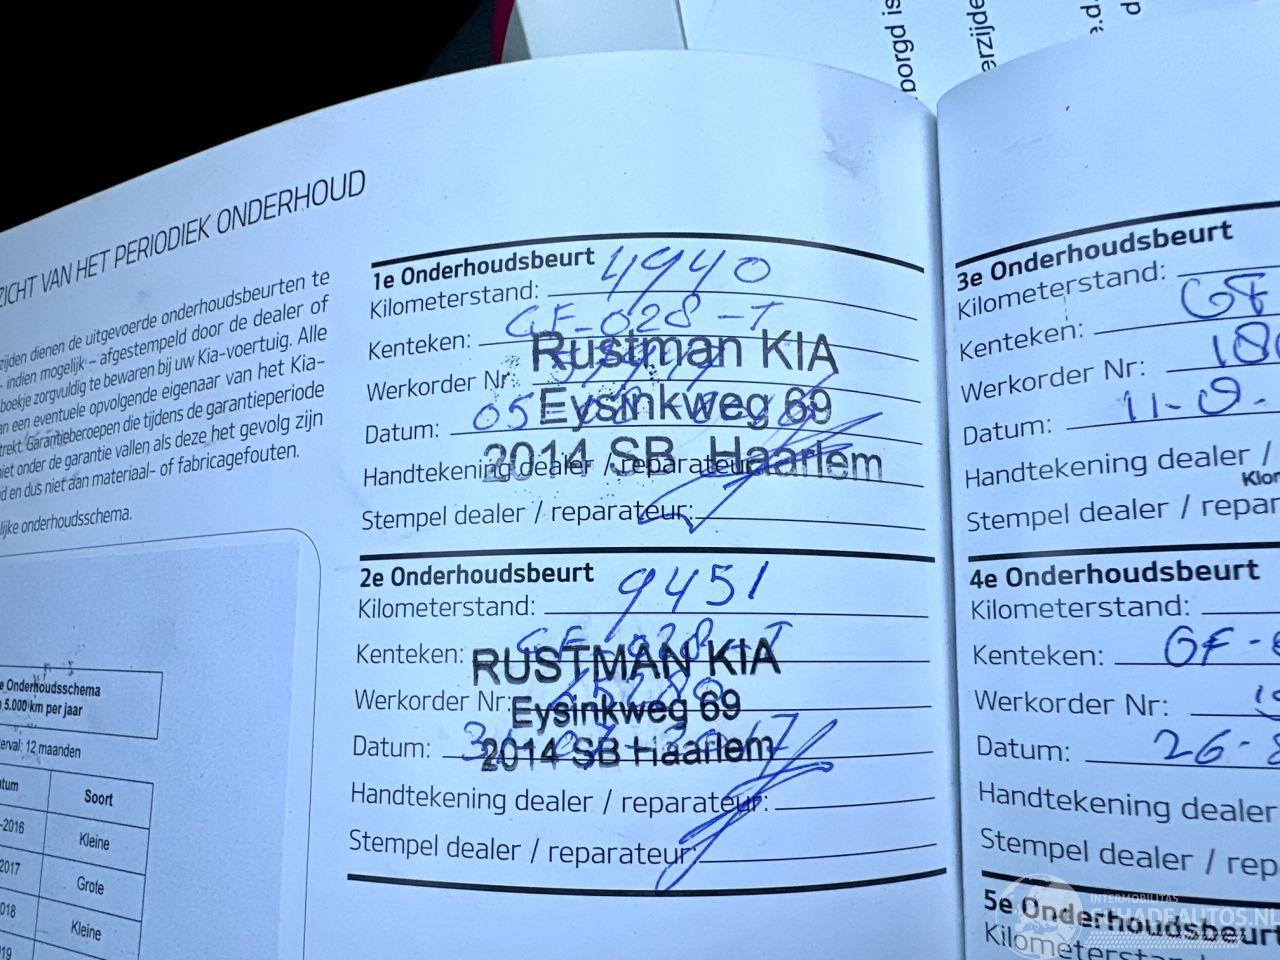 oorgd is
erzijde
ZICHT VAN HET PERIODIEK ONDERHOUD
zijden dienen de uitgevoerde onderhoudsbeurten te
- indien mogelijk - afgestempeld door de dealer of
boekje zorgvuldig te bewaren bij uw Kia-voertuig. Alle
an een eventuele opvolgende eigenaar van het Kia-
trekt. Garantieberoepen die tijdens de garantieperiode
niet onder de garantie vallen als deze het gevolg zijn
d en dus niet aan materiaal- of fabricagefouten.
lijke onderhoudsschema.
e Onderhoudsschema
5.000 km per jaar
erval: 12 maanden
tum Soort
-2016 Kleine
2017 Grote
018 Kleine
019
1e Onderhoudsbeurt
Kilometerstand: 4940
Kenteken: GF-028-T
Werkorder Nr:
Datum: 05
Handtekening dealer / reparateur:
Stempel dealer / reparateur:
Rustman KIA
Eysinkweg 69
2014 SB Haarlem
2e Onderhoudsbeurt
Kilometerstand: 9451
Kenteken: GF-028-T
Werkorder Nr:
Datum:
Handtekening dealer / reparateur:
Stempel dealer / reparateur:
RUSTMAN KIA
Eysinkweg 69
2014 SB Haarlem
3e Onderhoudsbeurt
Kilometerstand:
Kenteken: GF
Werkorder Nr: 180
Datum: 11-0.
Handtekening dealer /
Klor
Stempel dealer / repar
4e Onderhoudsbeurt
Kilometerstand:
Kenteken: GF-
Werkorder Nr:
Datum: 26-8
Handtekening dealer
Stempel dealer / rep
5e Onderhoudsbeurt
Kilometerstan
INTERMOBILITAS
SCHADEAUTOS.NL